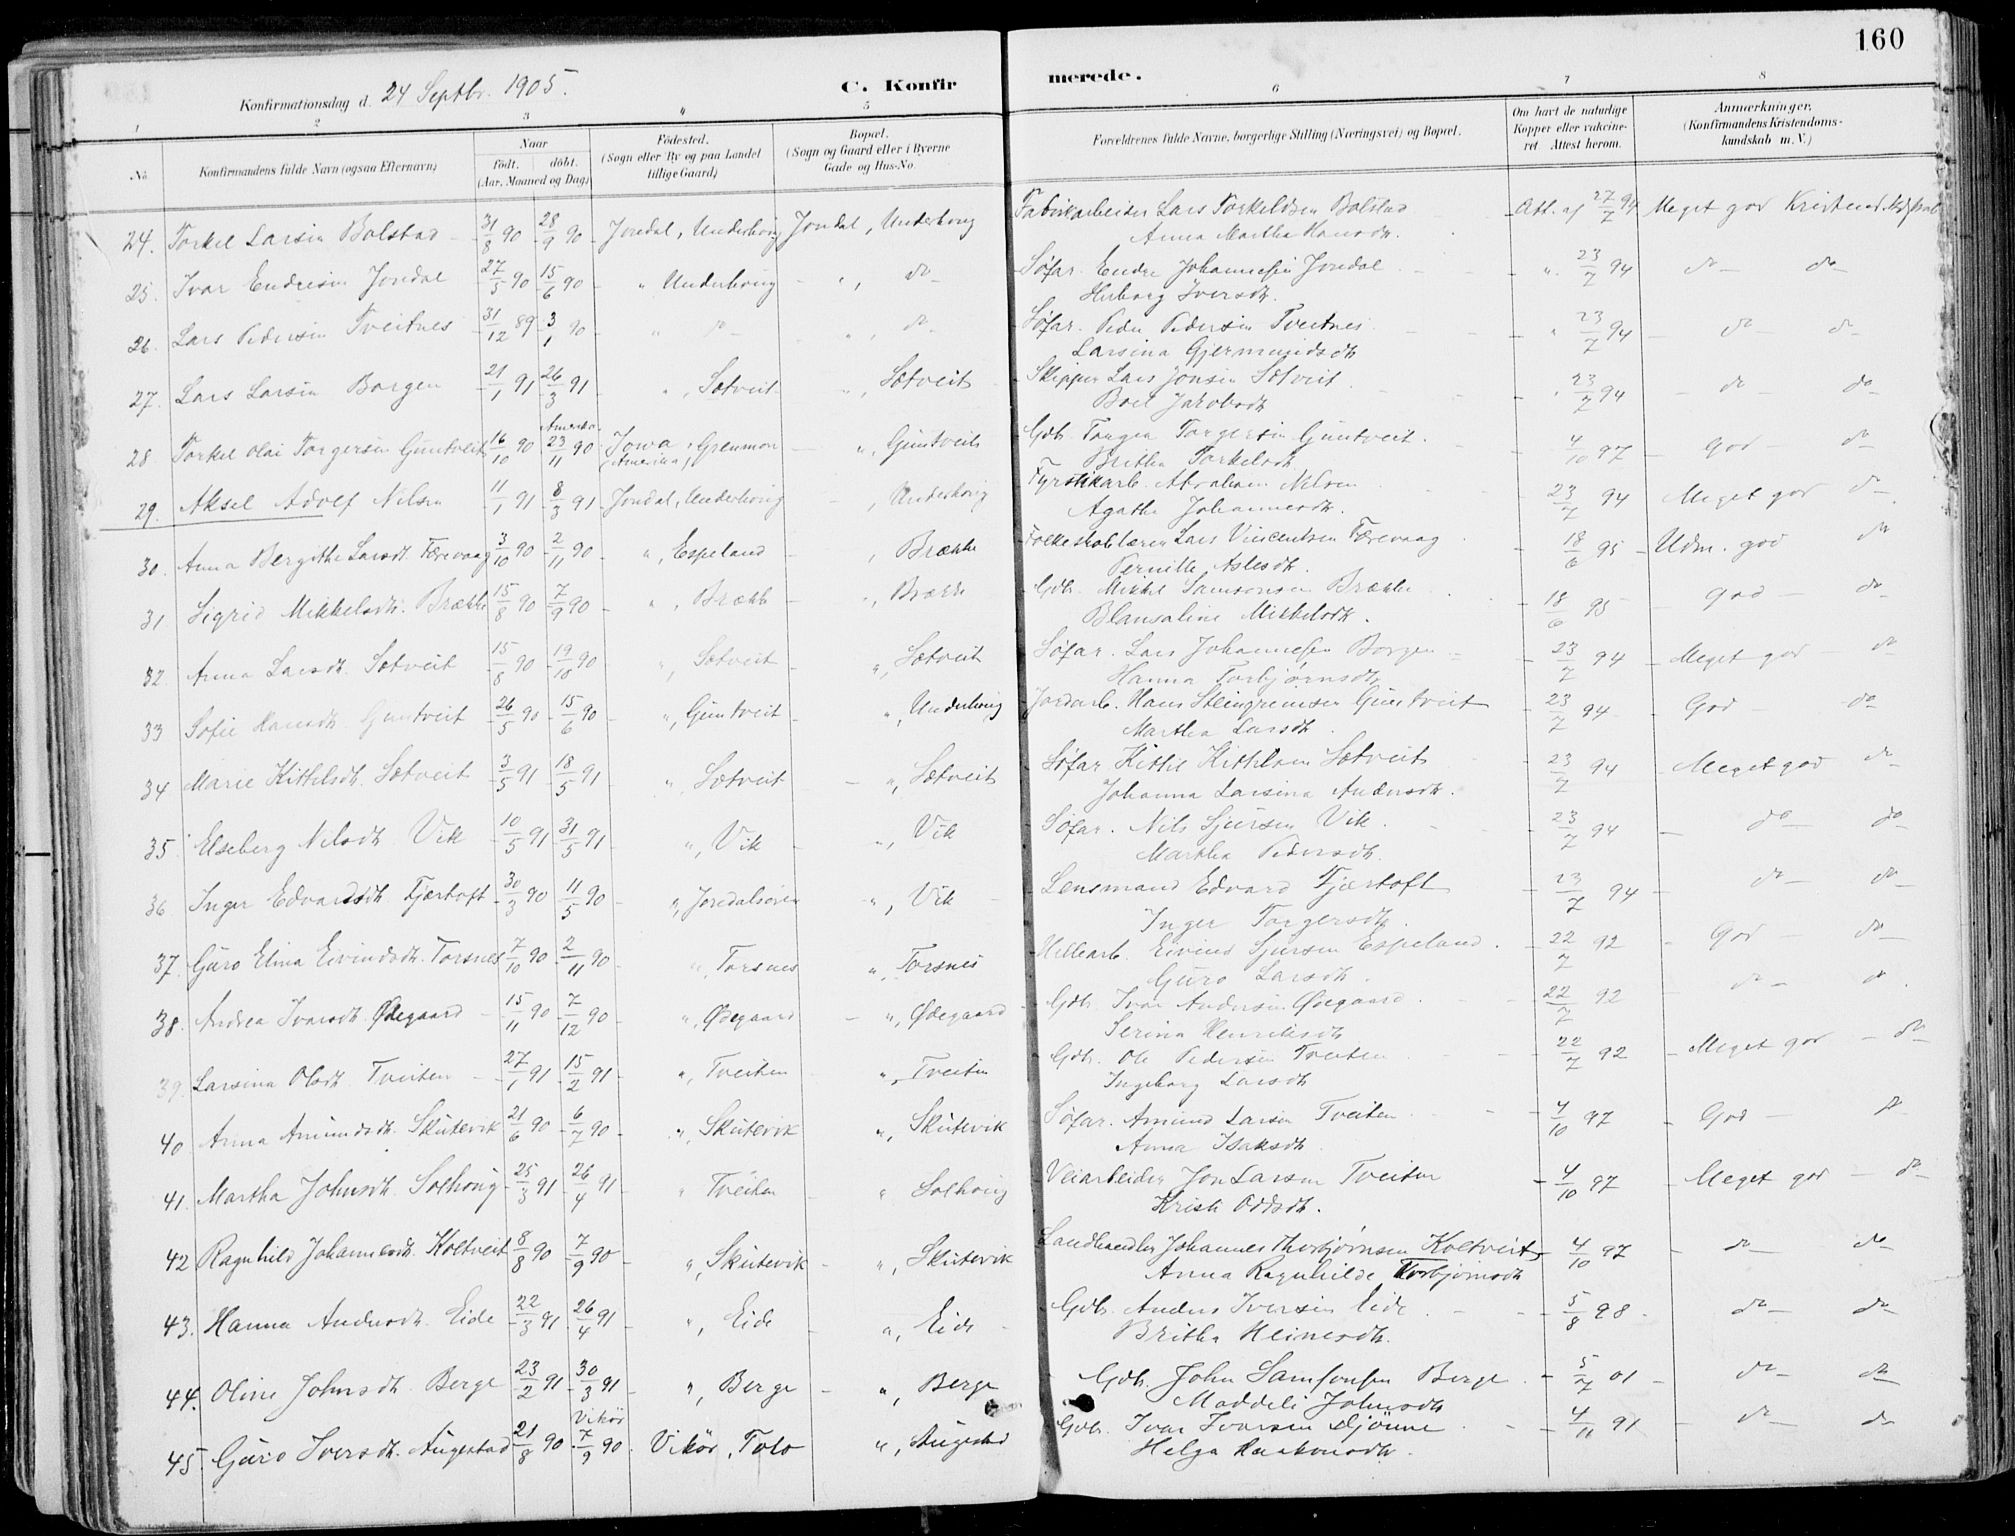 160
Konfirmationsdag d. 24 Septbr. 1905.
C. Konfirmerede.
1 2 3 4 5 6 7 8
No. Konfirmandens fulde Navn (ogsaa Efternavn) Naar født. døbt. (Aar, Maaned og Dag) Fødested. (Sogn eller By og paa Landet tillige Gaard) Bopæl. (Sogn og Gaard eller i Byerne Gade og Hus-No. Forældrenes fulde Navne, borgerlige Stilling (Næringsvei) og Bopæl. Om havt de naturlige Kopper eller vakcineret. Attest herom. Anmærkninger, (Konfirmandens Kristendomskundskab m. V.)
24. Torkel Larsen Bolstad 31/8 90 28/9 90 Jondal, Underhoug Jondal, Underhoug Fabrikarbeider Lars Torkeldsen Bolstad Att. af 27/7 94 Meget god
Anna Martha Hansdtr.
25. Ivar Endresen Jondal 27/5 90 15/6 90 " Underhoug " , do Søfar. Endre Johannesen Jondal " 23/7 94 do do
Herborg Iversdtr.
26. Lars Pedersen Tveitnes 31/12 89 3/1 90 " do " , do Søfar. Peder Pedersen Tveitnes " 23/7 94 do do
Larsina Gjermundsdtr
27. Lars Larsen Borgen 21/1 91 26/3 91 " , Sætveit " , Sætveit Skipper Lars Jonsen Sætveit " 23/7 94 do do
Boel Jakobsdtr
28. Torkel Olai Torgersen Guntveit 16/10 90 Amerika 23/11 90 Iowa, Grenmon (Amerika) " , Guntveit Gdb. Torger Torgersen Guntveit 4/10 97 God do
Britha Torkelsdtr
29. Aksel Adolf Nilsen 11/1 91 8/3 91 Jondal, Underhoug " , Underhoug Fyrstikarb. Abraham Nilsen 23/7 94 Meget god do
Agathe Johannesdtr.
30. Anna Bergithe Larsdtr. Færevaag 3/10 90 2/11 90 " , Espeland , Brække Folkeskolelærer Lars Vincentsen Færevaag 18/6 95 Udm. god do
Pernille Aslesdtr.
31 Sigrid Mikkelsdtr. Brække 15/8 90 7/9 90 " , Brække " , Brække Gdb. Mikkel Samsonsen Brække 18/6 95 God do
Blansaline Mikkelsdtr.
32. Anna Larsdtr Sætveit 15/8 90 19/10 90 " , Sætveit " , Sætveit Søfar. Lars Johannesen Borgen 23/7 94 Meget god do
Hanna Torbjørnsdtr
33 Sofie Hansdtr Guntveit 26/5 90 15/6 90 " , Guntveit " , Underhoug Jordarb. Hans Steingrimsen Guntveit 23/7 94 God do
Martha Larsdtr
34 Marie Kittelsdtr Sætveit 3/5 91 18/5 91 " , Sætveit " , Sætveit Søfar. Kittil Kittelsen Sætveit 23/7 94 Meget god do
Johanna Larsina Andersdtr.
35. Elseberg Nilsdtr Vik 10/5 91 31/5 91 " , Vik " , Vik Søfar. Nils Sjursen Vik. 23/7 94 do do
Martha Pedersdtr.
36 Inger Edvardsdtr Fjærtoft 30/3 90 11/5 90 " , Jondalsøren " , Vik Lensmand Edvard Fjærtoft 23/7 94 do do
Inger Torgersdtr.
37. Guro Elina Eivindsdtr. Torsnes 7/10 90 2/11 90 " , Torsnes " , Torsnes Hellearb. Eivind Sjursen Espeland. 22/7 92 God do
Guro Larsdtr.
38. Andrea Ivarsdtr. Ødegaard 15/11 90 7/12 90 " , Ødegaard " , Ødegaard Gdb. Ivar Andersen Ødegaard. 22/7 92 do do
Serina Henriksdtr
39. Larsina Olsdtr. Tveiten 27/1 91 15/2 91 " , Tveiten " , Tveiten Gdb. Ole Pedersen Tveiten 22/7 92 Meget god do
Ingeborg Larsdtr
40 Anna Amundsdtr. Skutevik 21/6 90 6/7 90 " , Skutevik " , Skutevik Søfar. Amund Larsen Tveiten 4/10 97 God do
Anna Isaksdtr.
41. Martha Johnsdtr. Solhoug 25/3 91 26/4 91 " Tveiten " Solhoug Veiarbeider Jon Larsen Tveiten 4/10 97 Meget god do
Kristi Oddsdtr.
42 Ragnhild Johannesdtr. Koltveit 8/8 90 7/9 90 " , Skutevik " , Skutevik Landhandler Johannes Thorbjørnsen Koltveit 4/10 97 do do
Anna Ragnhilde Torbjørnsdtr
43. Hanna Andersdtr. Eide 22/3 91 26/4 91 " , Eide " , Eide Gdb. Anders Iversen Eide 5/8 98 do do
Britha Heinesdtr.
44. Oline Johnsdtr. Berge 23/2 91 30/3 91 " , Berge " , Berge Gdb. John Samsonsen Berge 5/7 01 do do
Maddeli Johnsdtr
45. Guro Iversdtr. Augestad 21/8 90 Vikør 7/9 90 Vikør, Tolo " , Augestad Gdb. Ivar Ivarsen Djønne 4/11 91 do do
Helga Haakonsdtr.